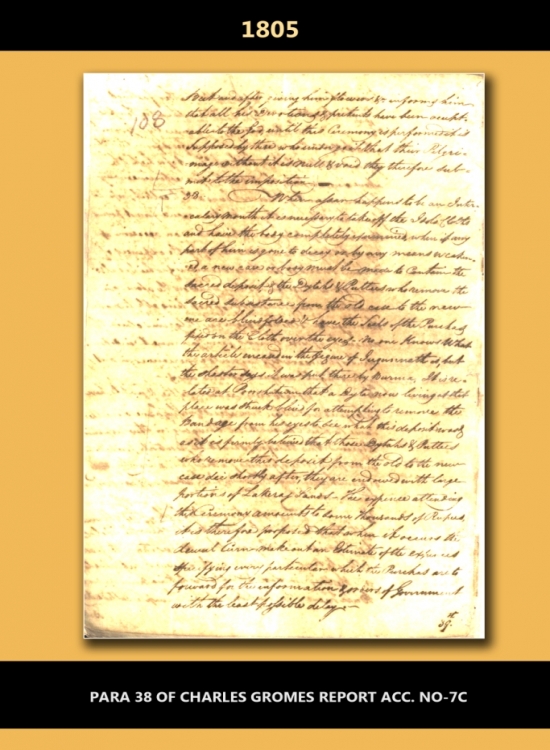 1805
108
and after giving him flowers & informing him
that all his devotions & pretents have been accept-
able to the God until this Ceremony is performed it is
supposed by those who inform that their Pilgri-
mage is thought null & void they therefore sub-
mit to the imposition
38. When a year happens to be an Inter-
calary month it is necessary to take off the Idols Cloths
and have the body completely examined when if any
part of him is gone to decay or by any means
a new case or body must be made to Contain the
sacred deposit & the Dytahs & Putties who remove the
sacred substance from the old case to the new
one are blindfolded & have the Seals of the Purchas
fixed on the Cloth over the eyes. No one Knows What
the article in the figure of Juggurnauth is, but
the says it was put there by Burma. It is re-
lated at Pooruttum that a Dyta now living at that
place was struck blind for attempting to remove the
Bandage from his eyes to see what this deposit was &
it is firmly believed that those Dytahs & Putties
who remove this deposit from the old to the new
case die shortly after, they are endowed with large
portions of Lakeraj Lands. The expence attending
this ceremony amounts to some thousands of Rupees
It is therefore proposed that when it occurs the
Dewul Cirn. make out an Estimate of the expences
specifying every particular which the Purchas are to
forward for the information & orders of Government
with the least possible delay
39.
PARA 38 OF CHARLES GROMES REPORT ACC. NO-7C